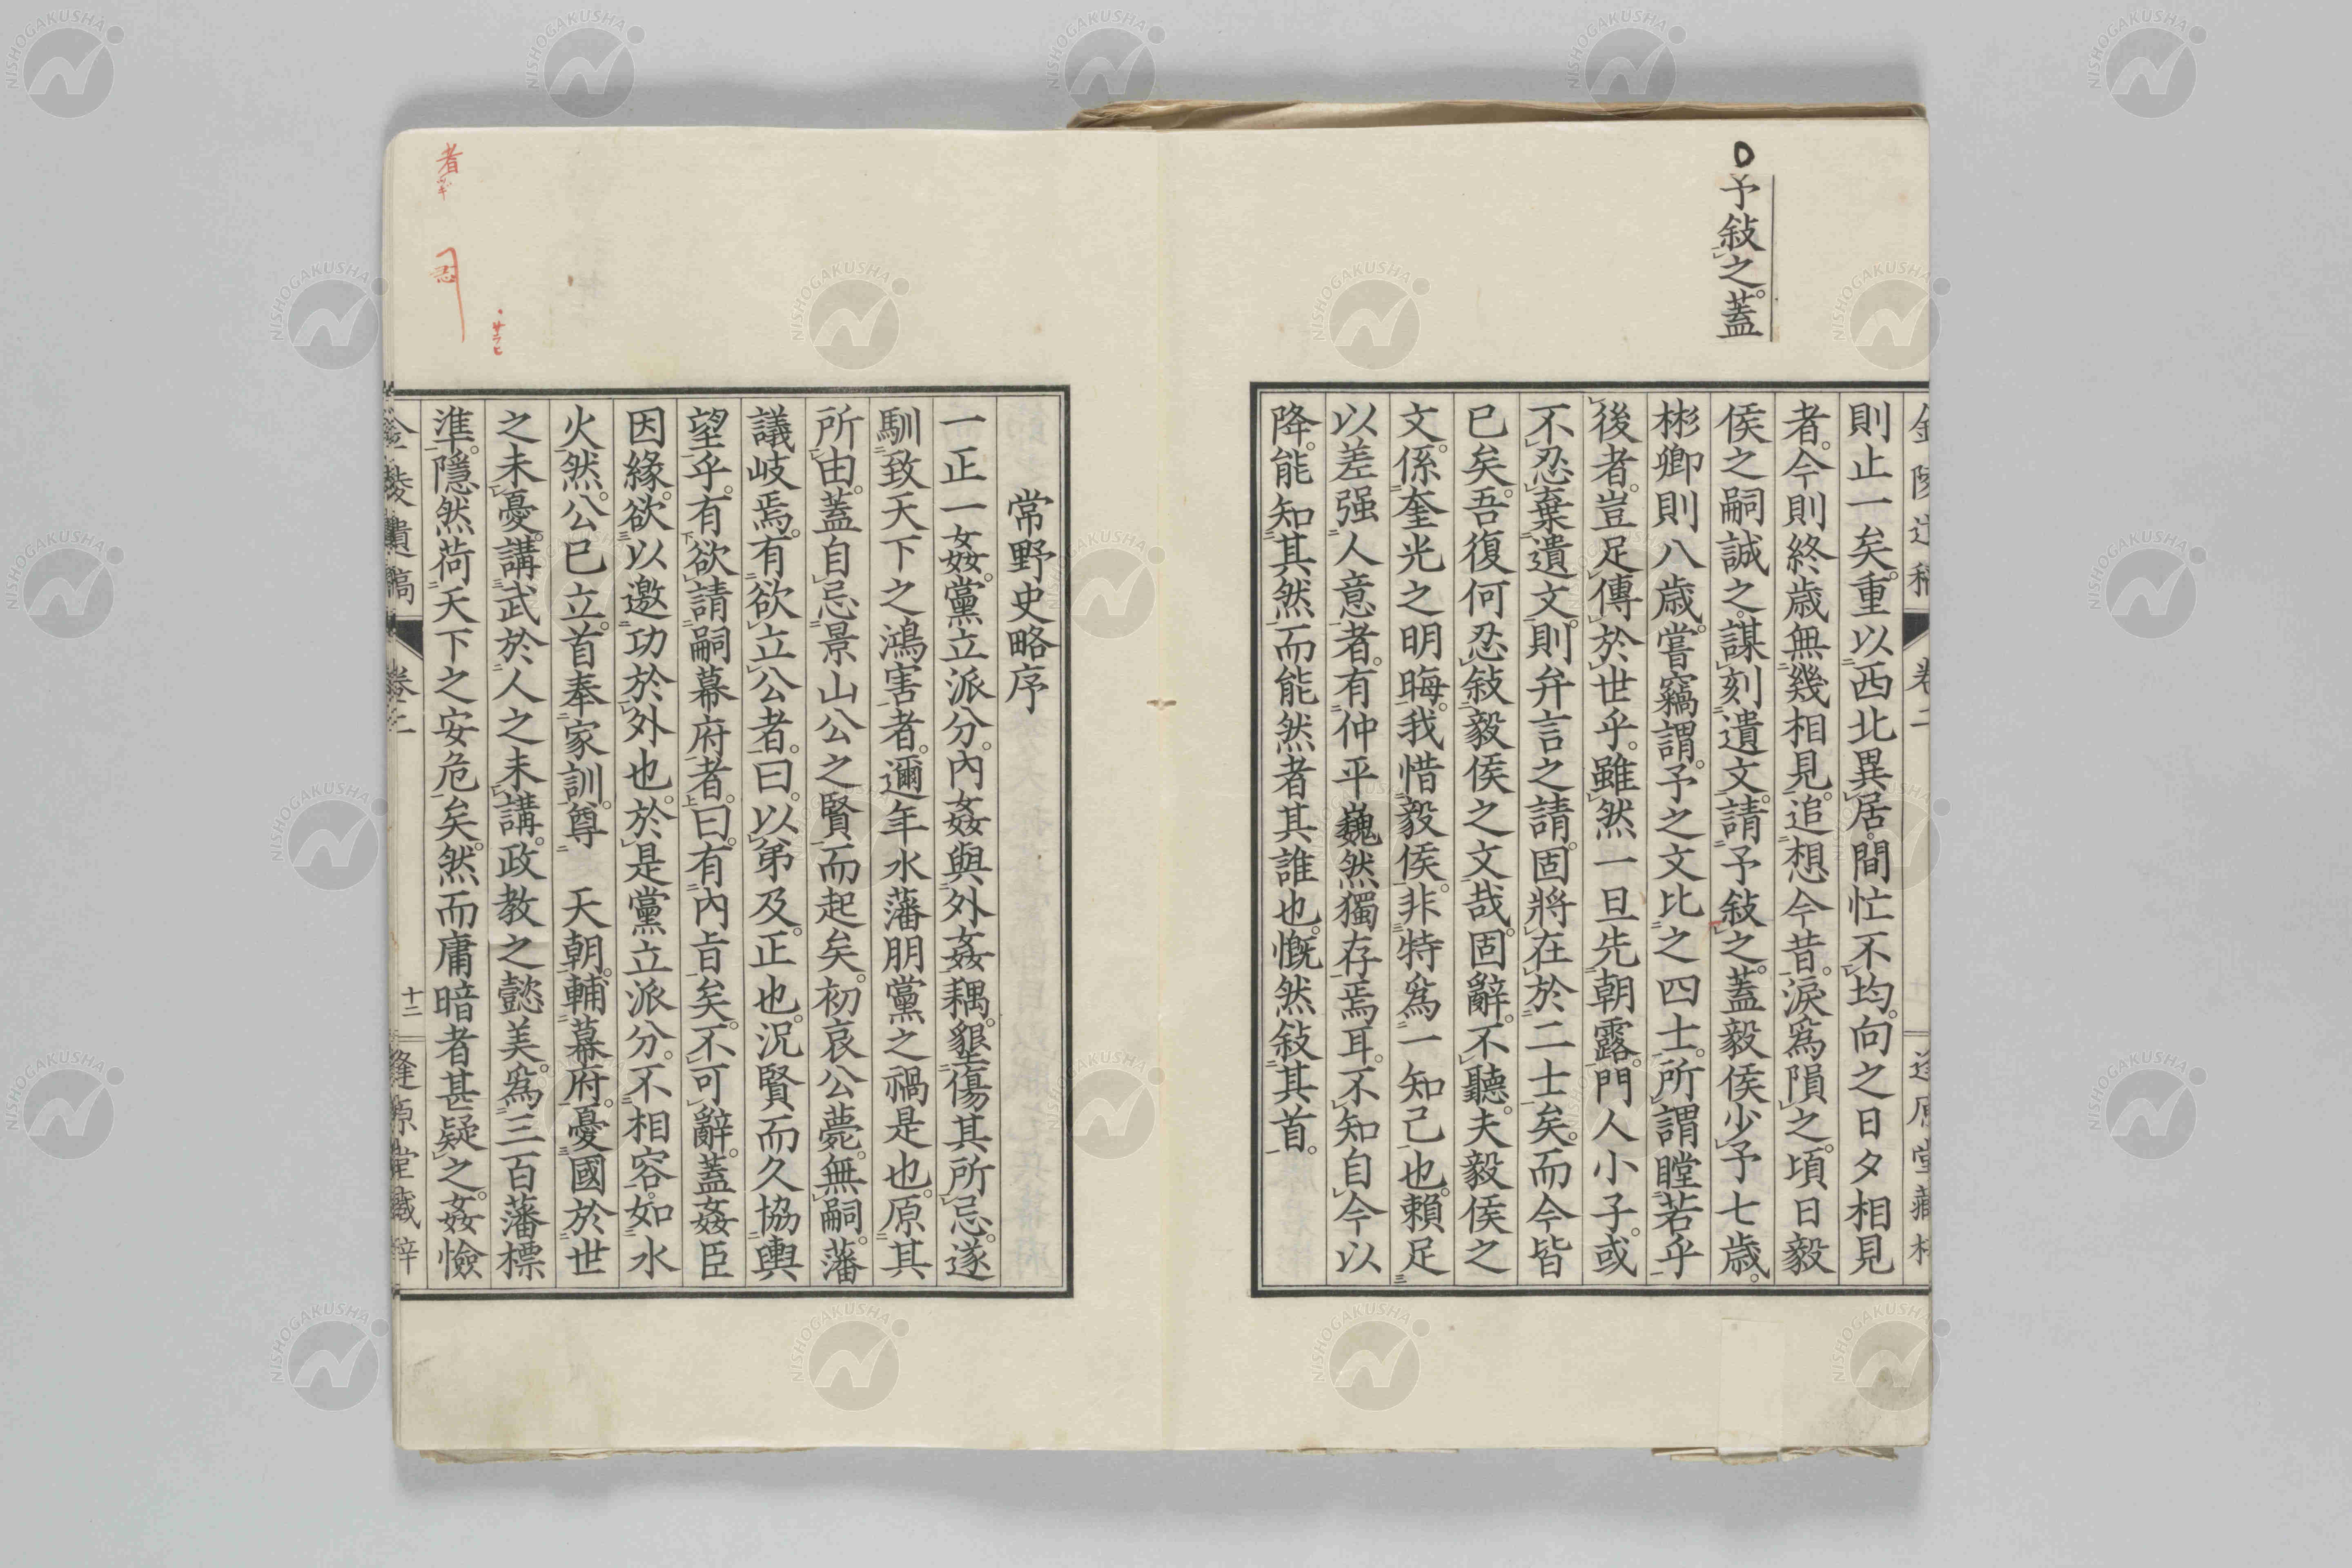 予敍之。蓋
則止一矣。重以西北異居。間忙不均。向之日夕相見
者。今則終歳無幾相見。追想今昔。涙爲隕之。頃日毅
侯之嗣誠之。謀刻遺文。請予敍之。蓋毅侯少予七歳。
彬卿則八歳。嘗竊謂。予之文比之四士。所謂瞠若乎
後者。豈足傳於世乎。雖然一旦先朝露。門人小子。或
不忍棄遺文。則弁言之請。固將在於二士矣。而今皆
已矣。吾復何忍敍毅侯之文哉。固辭。不聽。夫毅侯之
文。係奎光之明晦。我惜毅侯。非特爲一知己也。賴足
以差强人意者。有仲平巍然獨存焉耳。不知自今以
降。能知其然而能然者其誰也。慨然敍其首。
常野史略序
一正一姦。黨立派分。內姦與外姦耦。墾傷其所忌。遂
馴致天下之鴻害者。邇年水藩朋黨之禍是也。原其
所由。蓋自忌景山公之賢而起矣。初哀公薨。無嗣。藩
議岐焉。有欲立公者。曰。以弟及。正也。況賢而久協輿
望乎。有欲請嗣幕府者。曰。有內旨矣。不可辭。蓋姦臣
因緣。欲以邀功於外也。於是黨立派分。不相容。如水
火然。公已立。首奉家訓。尊 天朝。輔幕府。憂國於世
之未憂。講武於人之未講。政教之懿美。爲三百藩標
準。隱然荷天下之安危矣。然而庸暗者甚疑之。姦憸
卷二
十二
者
志
NISHOGAKUSHA